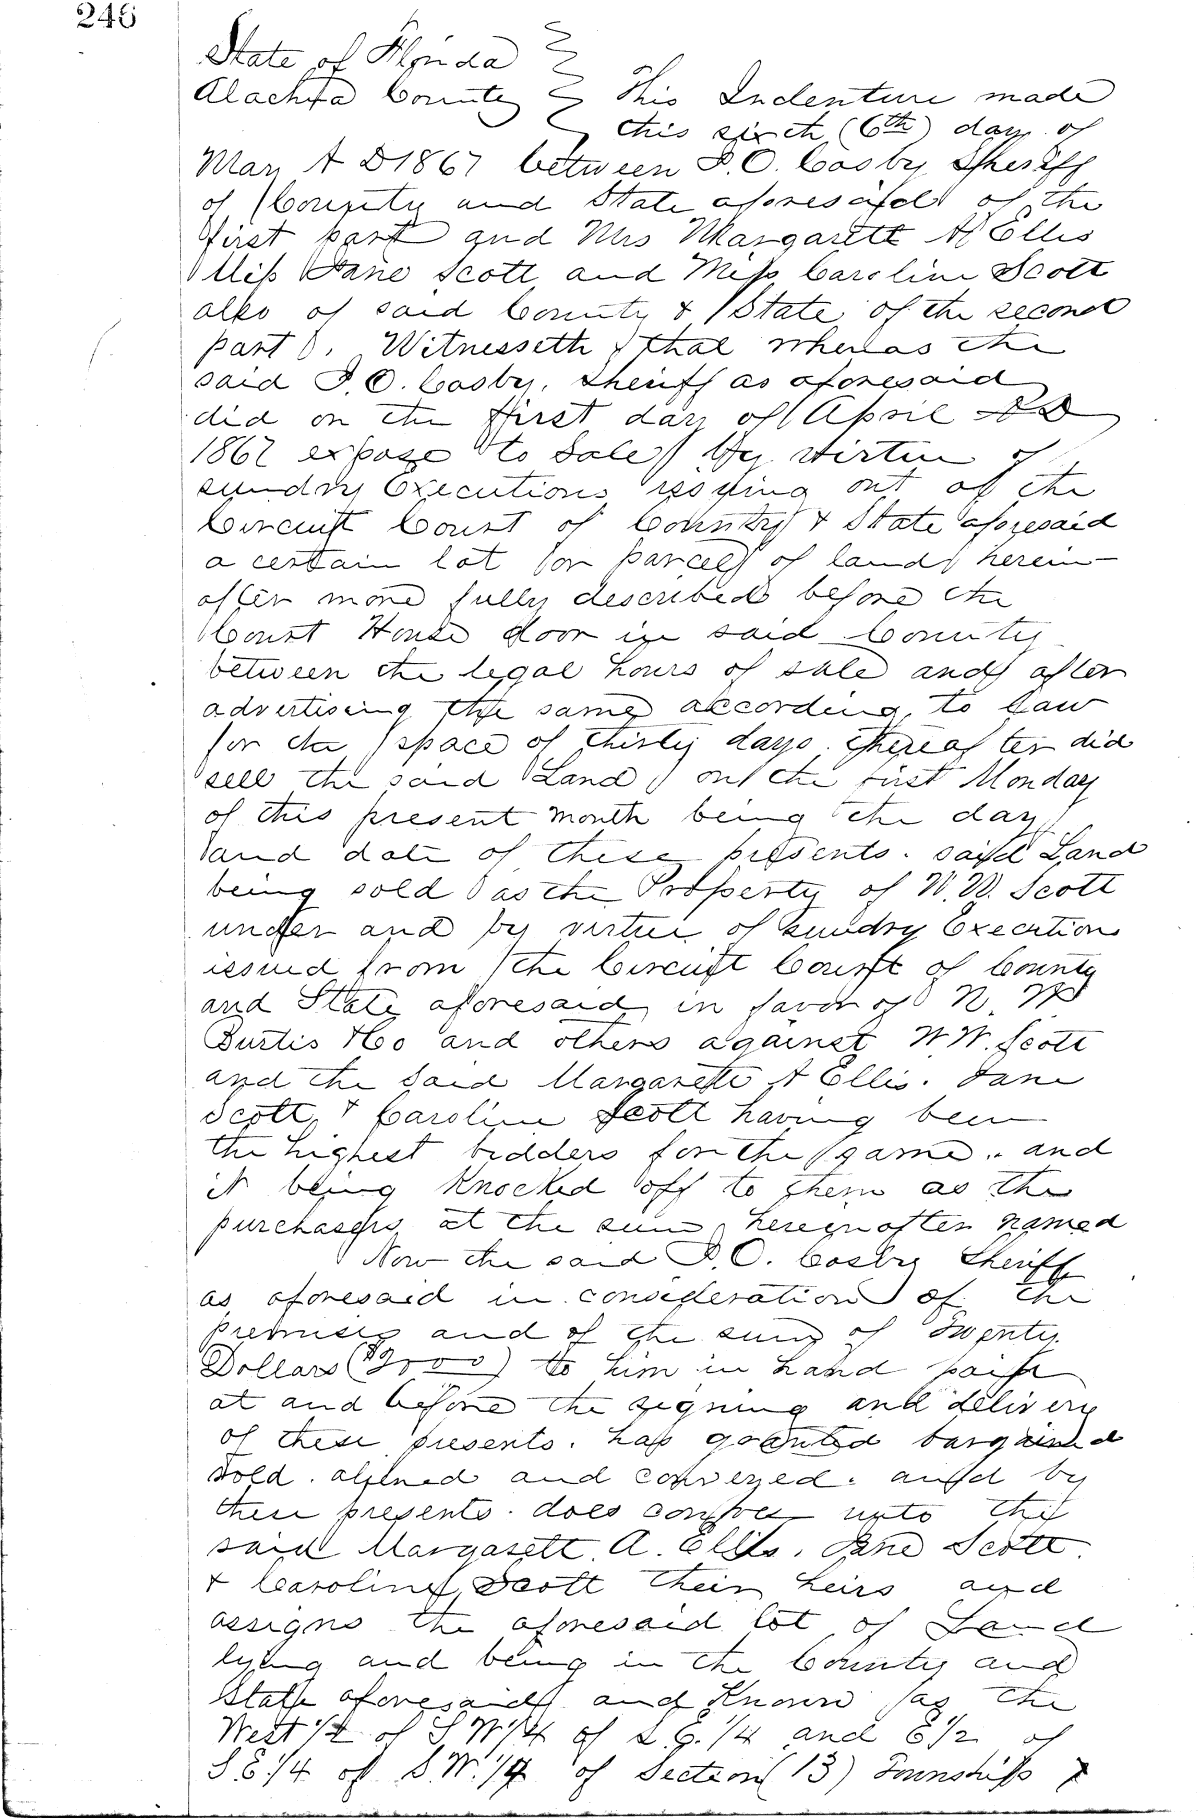 246
State of Florida
Alachua County This Indenture made
this sixth (6th) day of
May A D 1867 between P.O. Cosby Sheriff
of County and State aforesaid of the
first part and Mrs Margarett A Ellis
Miss Jane Scott and Miss Caroline Scott
also of said County & State of the second
part. Witnesseth that whereas the
said P.O. Cosby, Sheriff as aforesaid
did on the first day of April AD
1867 expose to Sale by virtue of
sundry Executions issuing out of the
Circuit Court of County & State aforesaid
a certain lot or parcel of land herein-
after more fully described before the
Court House door in said County
between the legal hours of sale and after
advertising the same according to law
for the space of thirty days. thereafter did
sell the said Land on the first Monday
of this present month being the day
and date of these presents. said Land
being sold as the Property of W.W. Scott
under and by virtue of sundry Executions
issued from the Circuit Court of County
and State aforesaid in favor of N. W
Burtis & Co and others against W.W. Scott
and the said Margarette A Ellis. Jane
Scott & Caroline Scott having been
the highest bidders for the same. and
it being Knocked off to them as the
purchasers at the sum hereinafter named
Now the said P.O. Cosby Sheriff
as aforesaid in consideration of the
premises and of the sum of Twenty
Dollars ($2000) to him in hand paid
at and before the signing and delivery
of these presents. has granted bargained
sold. aliened and conveyed. and by
these presents. does convey unto the
said Margarett A. Ellis. Jane Scott
& Caroline Scott their heirs and
assigns the aforesaid lot of Land
lying and being in the County and
State aforesaid and Known as the
West 1/2 of S W 1/4 of S.E. 1/4 and E 1/2 of
S.E. 1/4 of S.W. 1/4 of Section (13) Township 7